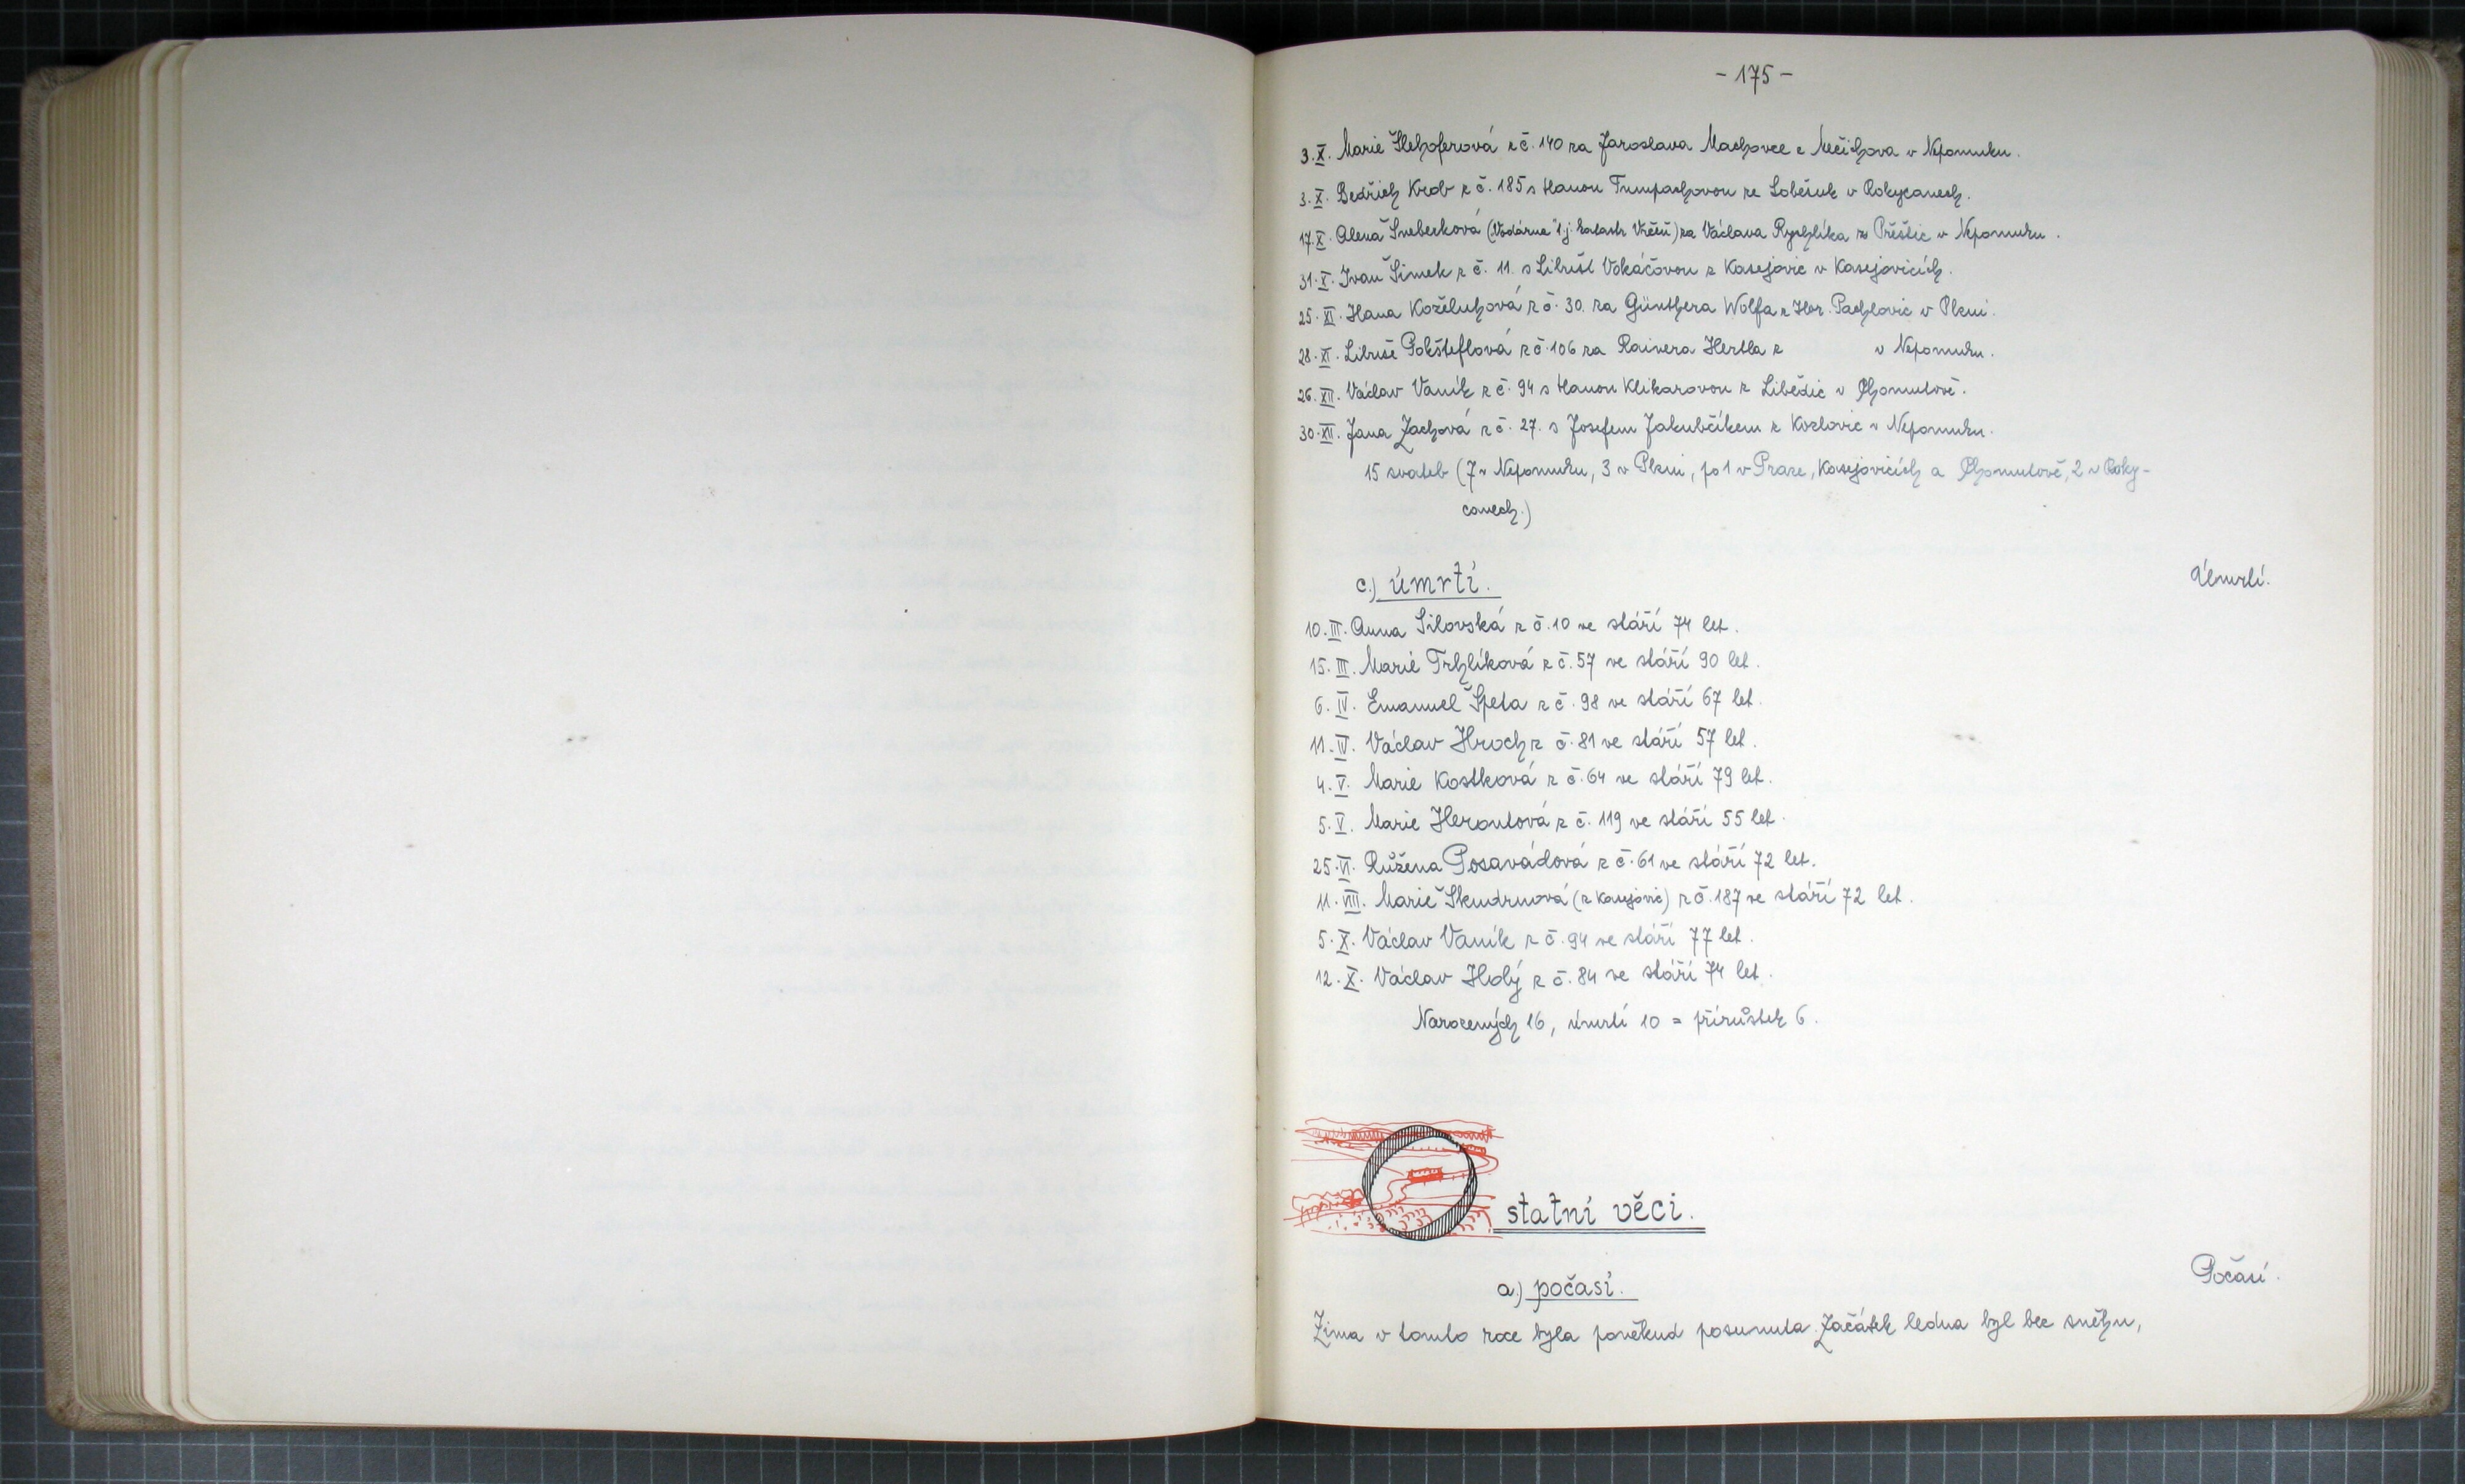 - 175 -
3.X. Marie Šlehoferová z č. 140 za Jaroslava Machovce z Mečichova v Nepomuku.
3.X. Bedřich Krob z č. 185 s Hanou Trumpachovou ze Soběsuk v Rokycanech.
17.X. Alena Sneberková (Vodárna" t.j. katastr Vrčeň) za Václava Rychlíka z Přeštic v Nepomuku.
31.X. Ivan Šimek z č. 11. s Libuší Vokáčovou z Kasejovic v Kasejovicích.
25.XI. Hana Koželuhová z č. 30. za Günthera Wolfa z Hor. Pachlovic v Plzni.
28.XI. Libuše Pokšteflová z č. 106 za Rainera Hertla z v Nepomuku.
26.XII. Václav Vaník z č. 94 s Hanou Klikarovou z Libědic v Chomutově.
30.XII. Jana Zachová z č. 27. s Josefem Jakubčíkem z Kozlovic v Nepomuku.
15 svateb (7 v Nepomuku, 3 v Plzni, po 1 v Praze, Kasejovicích a Chomutově, 2 v Roky-
canech.)
c.) úmrtí.
Úmrtí.
10.III. Anna Silovská z č. 10 ve stáří 74 let.
15.III. Marie Trhlíková z č. 57 ve stáří 90 let.
6.IV. Emanuel Špeta z č. 98 ve stáří 67 let.
11.IV. Václav Hroch z č. 81 ve stáří 57 let.
4.V. Marie Kostková z č. 64 ve stáří 79 let.
5.V. Marie Heroutová z č. 119 ve stáří 55 let.
25.VI. Růžena Posavádová z č. 61 ve stáří 72 let.
11.VIII. Marie Škudrnová (z Kasejovic) z č. 187 ve stáří 72 let.
5.X. Václav Vaník z č. 94 ve stáří 77 let.
12.X. Václav Holý z č. 84 ve stáří 74 let.
Narozených 16, úmrtí 10 = přírůstek 6.
Ostatní věci.
a.) počasí.
Počasí.
Zima v tomto roce byla poněkud posunuta. Začátek ledna byl bez sněhu,